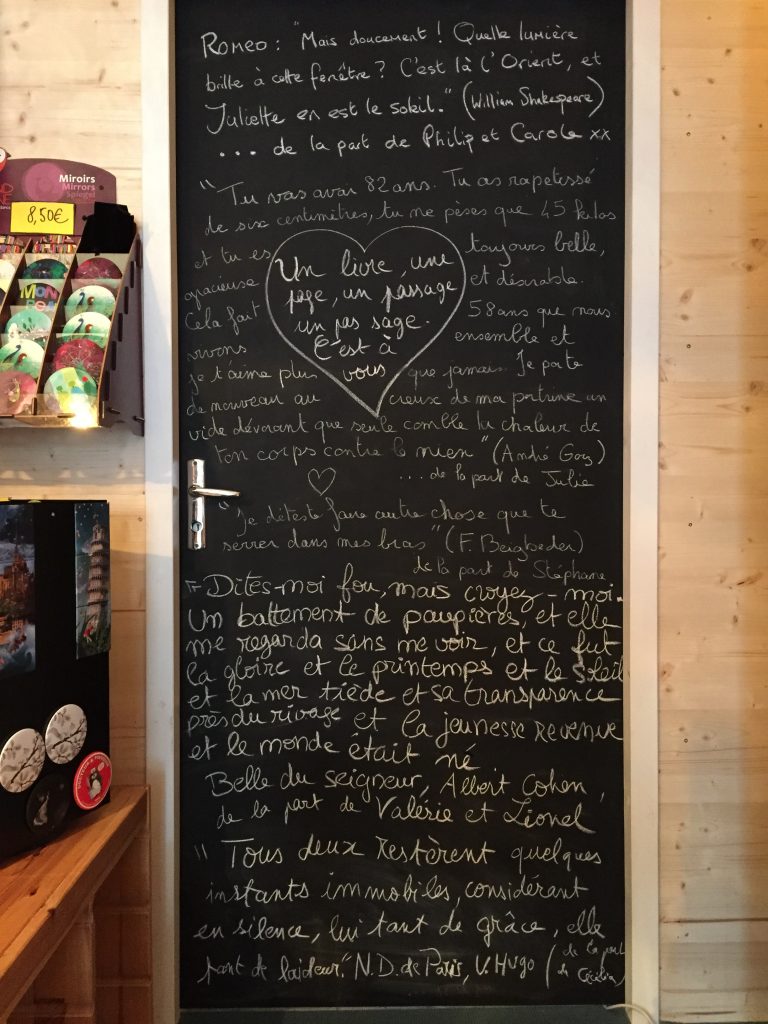 Romeo : "Mais doucement ! Quelle lumière
brille à cette fenêtre ? C'est là l'Orient, et
Juliette en est le soleil." (William Shakespeare)
... de la part de Philip et Carole xx
"Tu vas avoir 82 ans. Tu as rapetissé
de six centimètres, tu ne pèses que 45 kilos
et tu es toujours belle,
gracieuse et désirable.
Cela fait 58 ans que nous
vivons ensemble et
je t'aime plus que jamais. Je porte
de nouveau au creux de ma poitrine un
vide dévorant que seule comble la chaleur de
ton corps contre le mien" (André Gorz)
.... de la part de Julie
Un livre, une
page, un passage
un pas sage.
C'est à
vous
"Je déteste faire autre chose que te
serrer dans mes bras" (F. Beigbeder)
de la part de Stéphane
Dites-moi fou, mais croyez-moi.
Un battement de paupières, et elle
me regarda sans me voir, et ce fut
la gloire et le printemps et le soleil
et la mer tiède et sa transparence
près du rivage et la jeunesse revenue
et le monde était né
Belle du seigneur, Albert Cohen,
de la part de Valérie et Lionel
"Tous deux restèrent quelques
instants immobiles, considérant
en silence, lui tant de grâce, elle
tant de laideur." N.D. de Paris, V. Hugo (de la part
de Cécilia)
Miroirs
Mirrors
Spiegel
8,50€